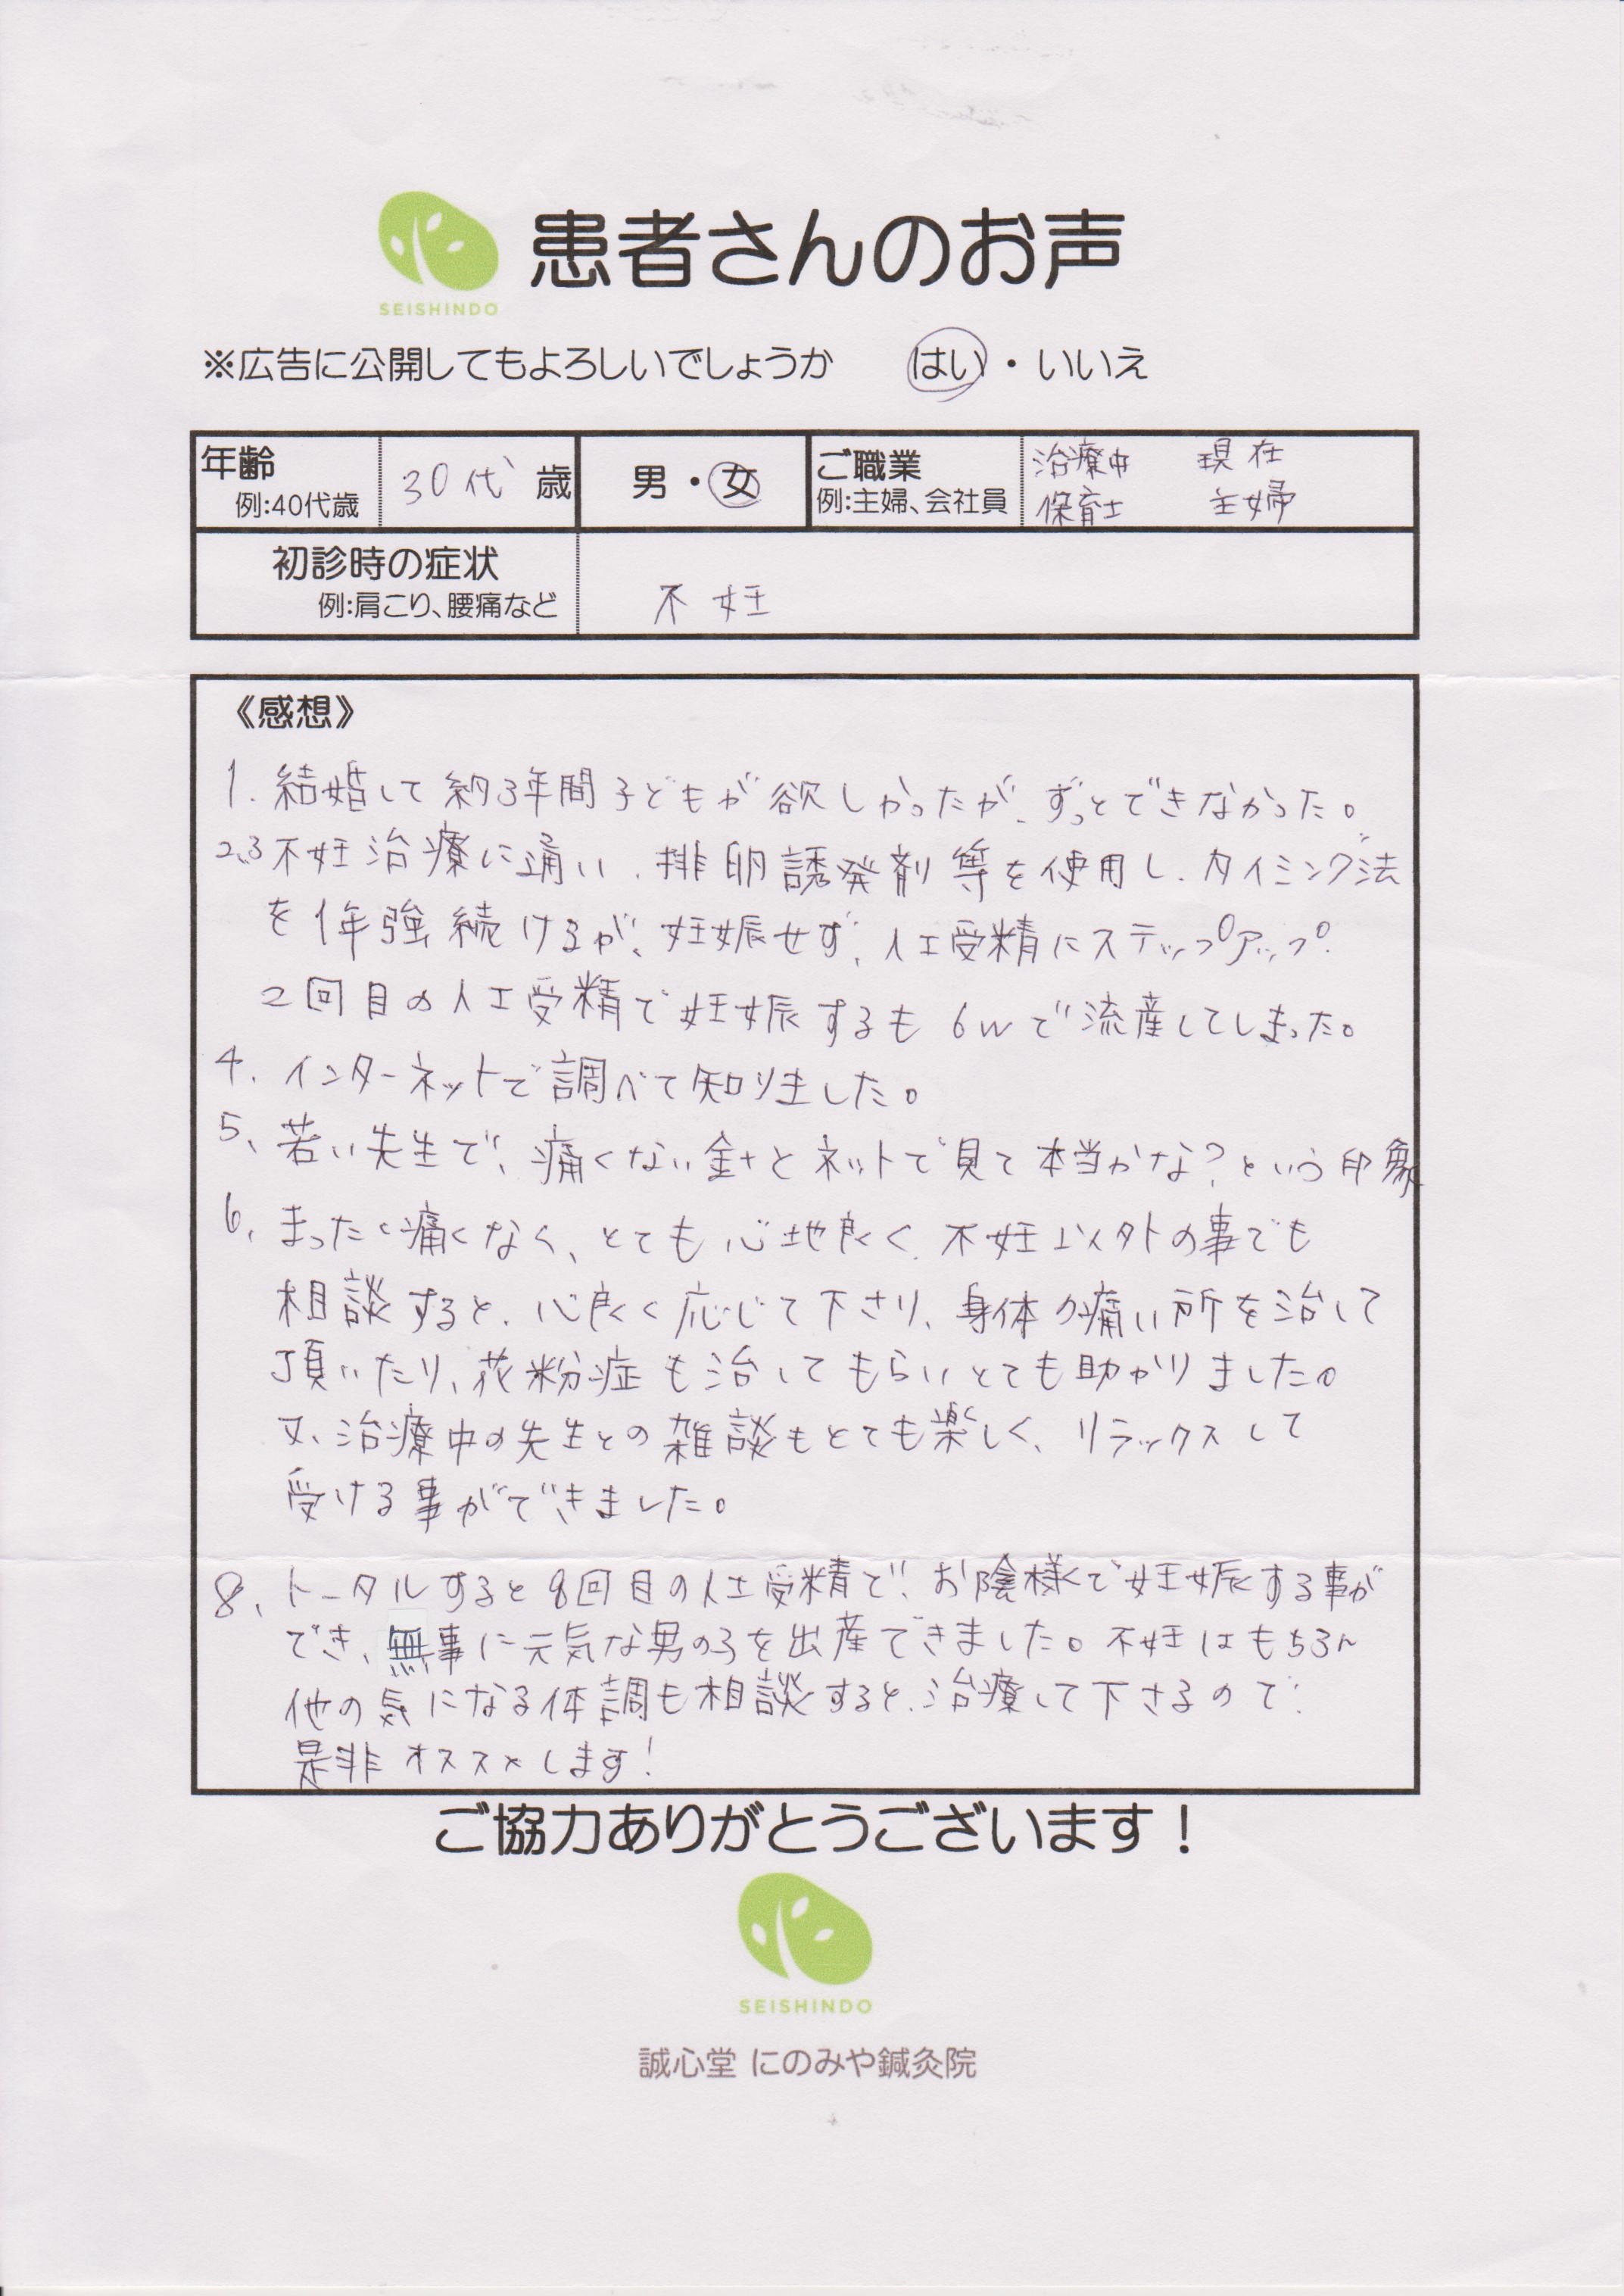 SEISHINDO
患者さんのお声
※広告に公開してもよろしいでしょうか はい・いいえ
年齢
例:40代歳
30代 歳
男・女
ご職業
例:主婦、会社員
治療中 現在
保育士 主婦
初診時の症状
例:肩こり、腰痛など
不妊
《感想》
1. 結婚して約3年間子どもが欲しかったが、ずっとできなかった。
2、3 不妊治療に通い、排卵誘発剤等を使用し、タイミング法
を1年強続けるが、妊娠せず、人工受精にステップアップ。
2回目の人工受精で妊娠するも6wで流産してしまった。
4. インターネットで調べて知りました。
5、若い先生で、痛くない針とネットで見て本当かな?という印象
6、まったく痛くなく、とても心地良く、不妊以外の事でも
相談すると、心良く応じて下さり、身体の痛い所を治して
頂いたり、花粉症も治してもらいとても助かりました。
又、治療中の先生との雑談もとても楽しく、リラックスして
受ける事ができました。
8、トータルすると8回目の人工受精で、お陰様で妊娠する事が
でき、無事に元気な男の子を出産できました。不妊はもちろん
他の気になる体調も相談すると、治療して下さるので
是非オススメします!
ご協力ありがとうございます!
SEISHINDO
誠心堂 にのみや鍼灸院